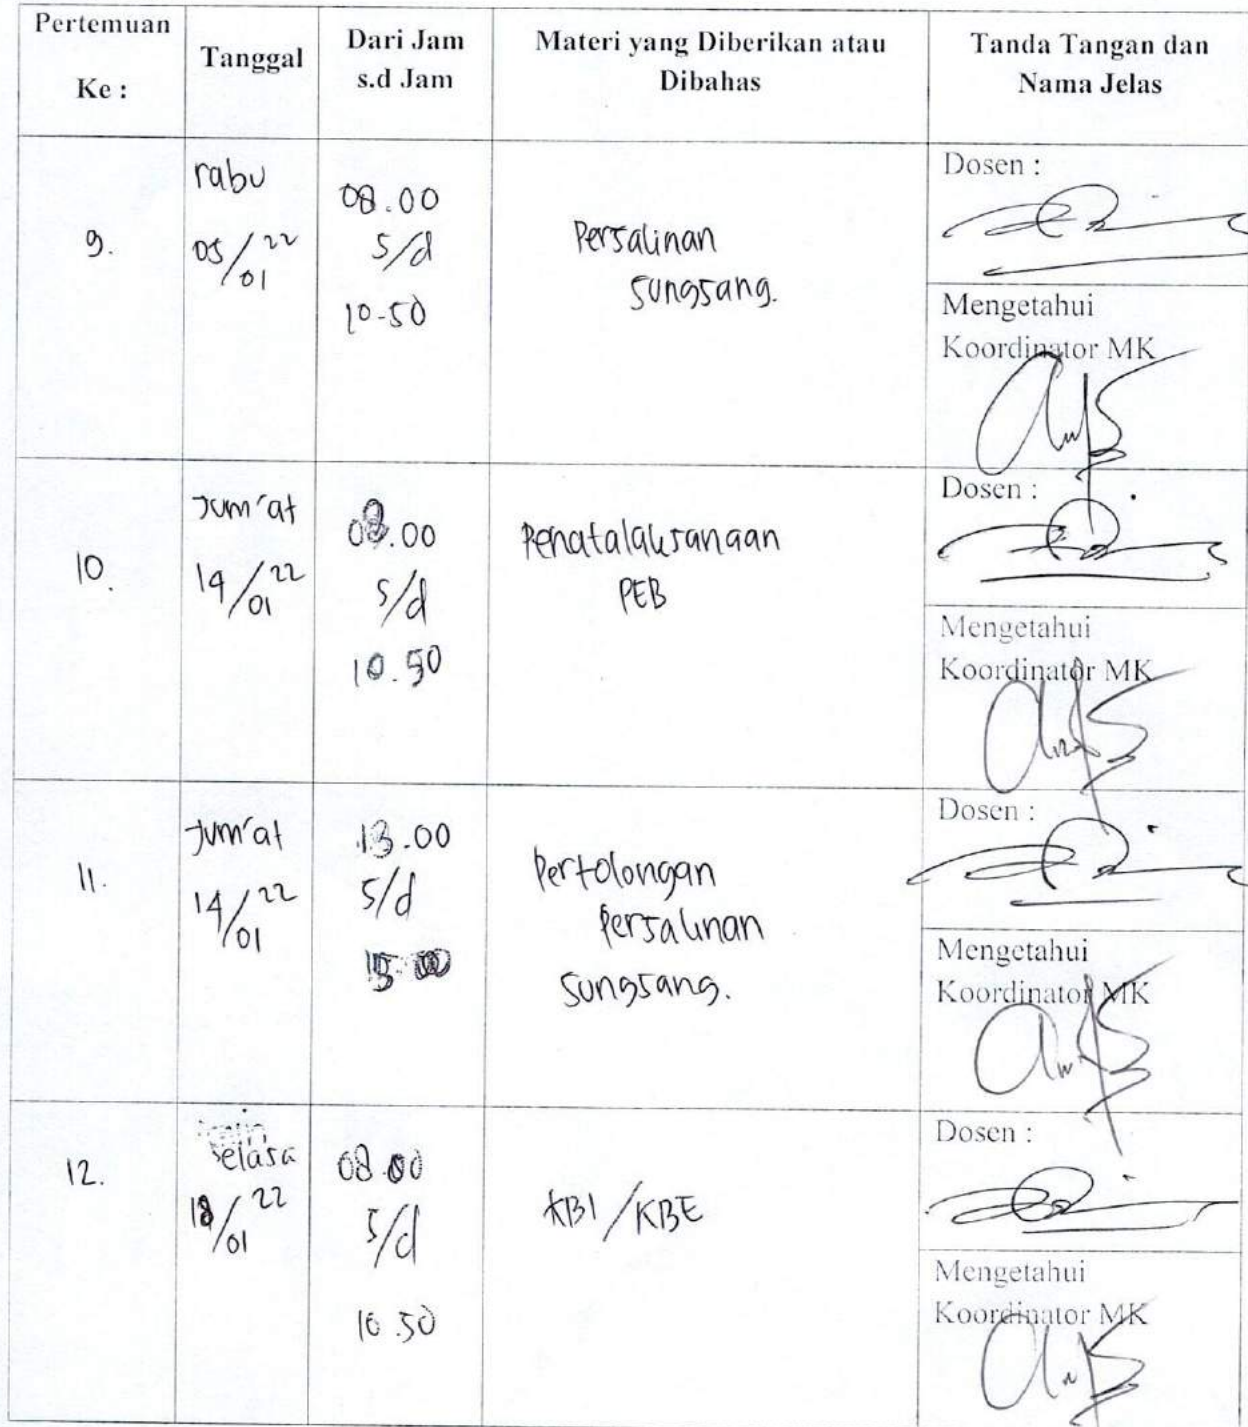 Pertemuan
Ke :
Tanggal
Dari Jam
s.d Jam
Materi yang Diberikan atau
Dibahas
Tanda Tangan dan
Nama Jelas
9.
rabu
05/01 22
08.00
s/d
10-50
Persalinan
sungsang.
Dosen :
Mengetahui
Koordinator MK
10.
Jum'at
14/01 22
08.00
s/d
10.50
Penatalaksanaan
PEB
Dosen :
Mengetahui
Koordinator MK
11.
Jum'at
14/01 22
13.00
s/d
15.00
Pertolongan
Persalinan
Sungsang.
Dosen :
Mengetahui
Koordinator MK
12.
selasa
18/01 22
08.00
s/d
10.50
KBI/KBE
Dosen :
Mengetahui
Koordinator MK